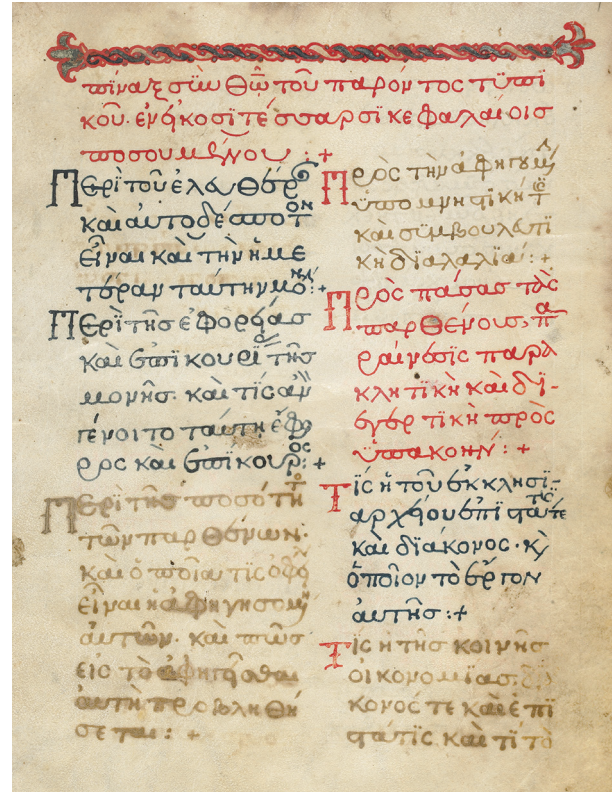 πίναξ σὺν Θῶ τοῦ παρόντος τυπι
κοῦ· ἐν εἰκοσιτέσσαρσι κεφαλαίοις
ποσουμένου :+
Περὶ τοῦ ἐλευθέρ
καὶ αὐτοδέσποτον
εἶναι καὶ τὴν ἡμε
τέραν ταύτην μονήν:+
Περὶ τῆς ἐφορείας
καὶ ἐπικουρίας τῆς
μονῆς· καὶ τίς ἂν
γένοιτο ταύτη ἔφο
ρος καὶ ἐπίκουρος:+
Περὶ τῆς ποσότητ
τῶν παρθένων·
καὶ ὁποία τις
εἶναι ἡ ἀφηγησομένη
αὐτῶν· καὶ πῶς
εἰς τὸ ἀφηγεῖσθαι
αὐτὴ προβληθή
σεται :+
Πρὸς τὴν ἀφηγουμένην
ὑπομνηστική τε
καὶ συμβουλευτι
κὴ διαλαλία :+
Πρὸς πάσας τὰς
παρθένους, πα
ραίνεσις παρα
κλητικὴ καὶ δι-
εγερτικὴ πρὸς
ὑπακοήν :+
Τίς ἡ τοῦ ἐκκλησι-
αρχείου ἐπιστάτις τε
καὶ διάκονος· καὶ
ὁποῖον τὸ ἔργον
αὐτῆς :+
Τίς ἡ τῆς κοινῆς
οἰκονομίας δια
κονός τε καὶ ἐπι
στάτις καὶ τί τὸ